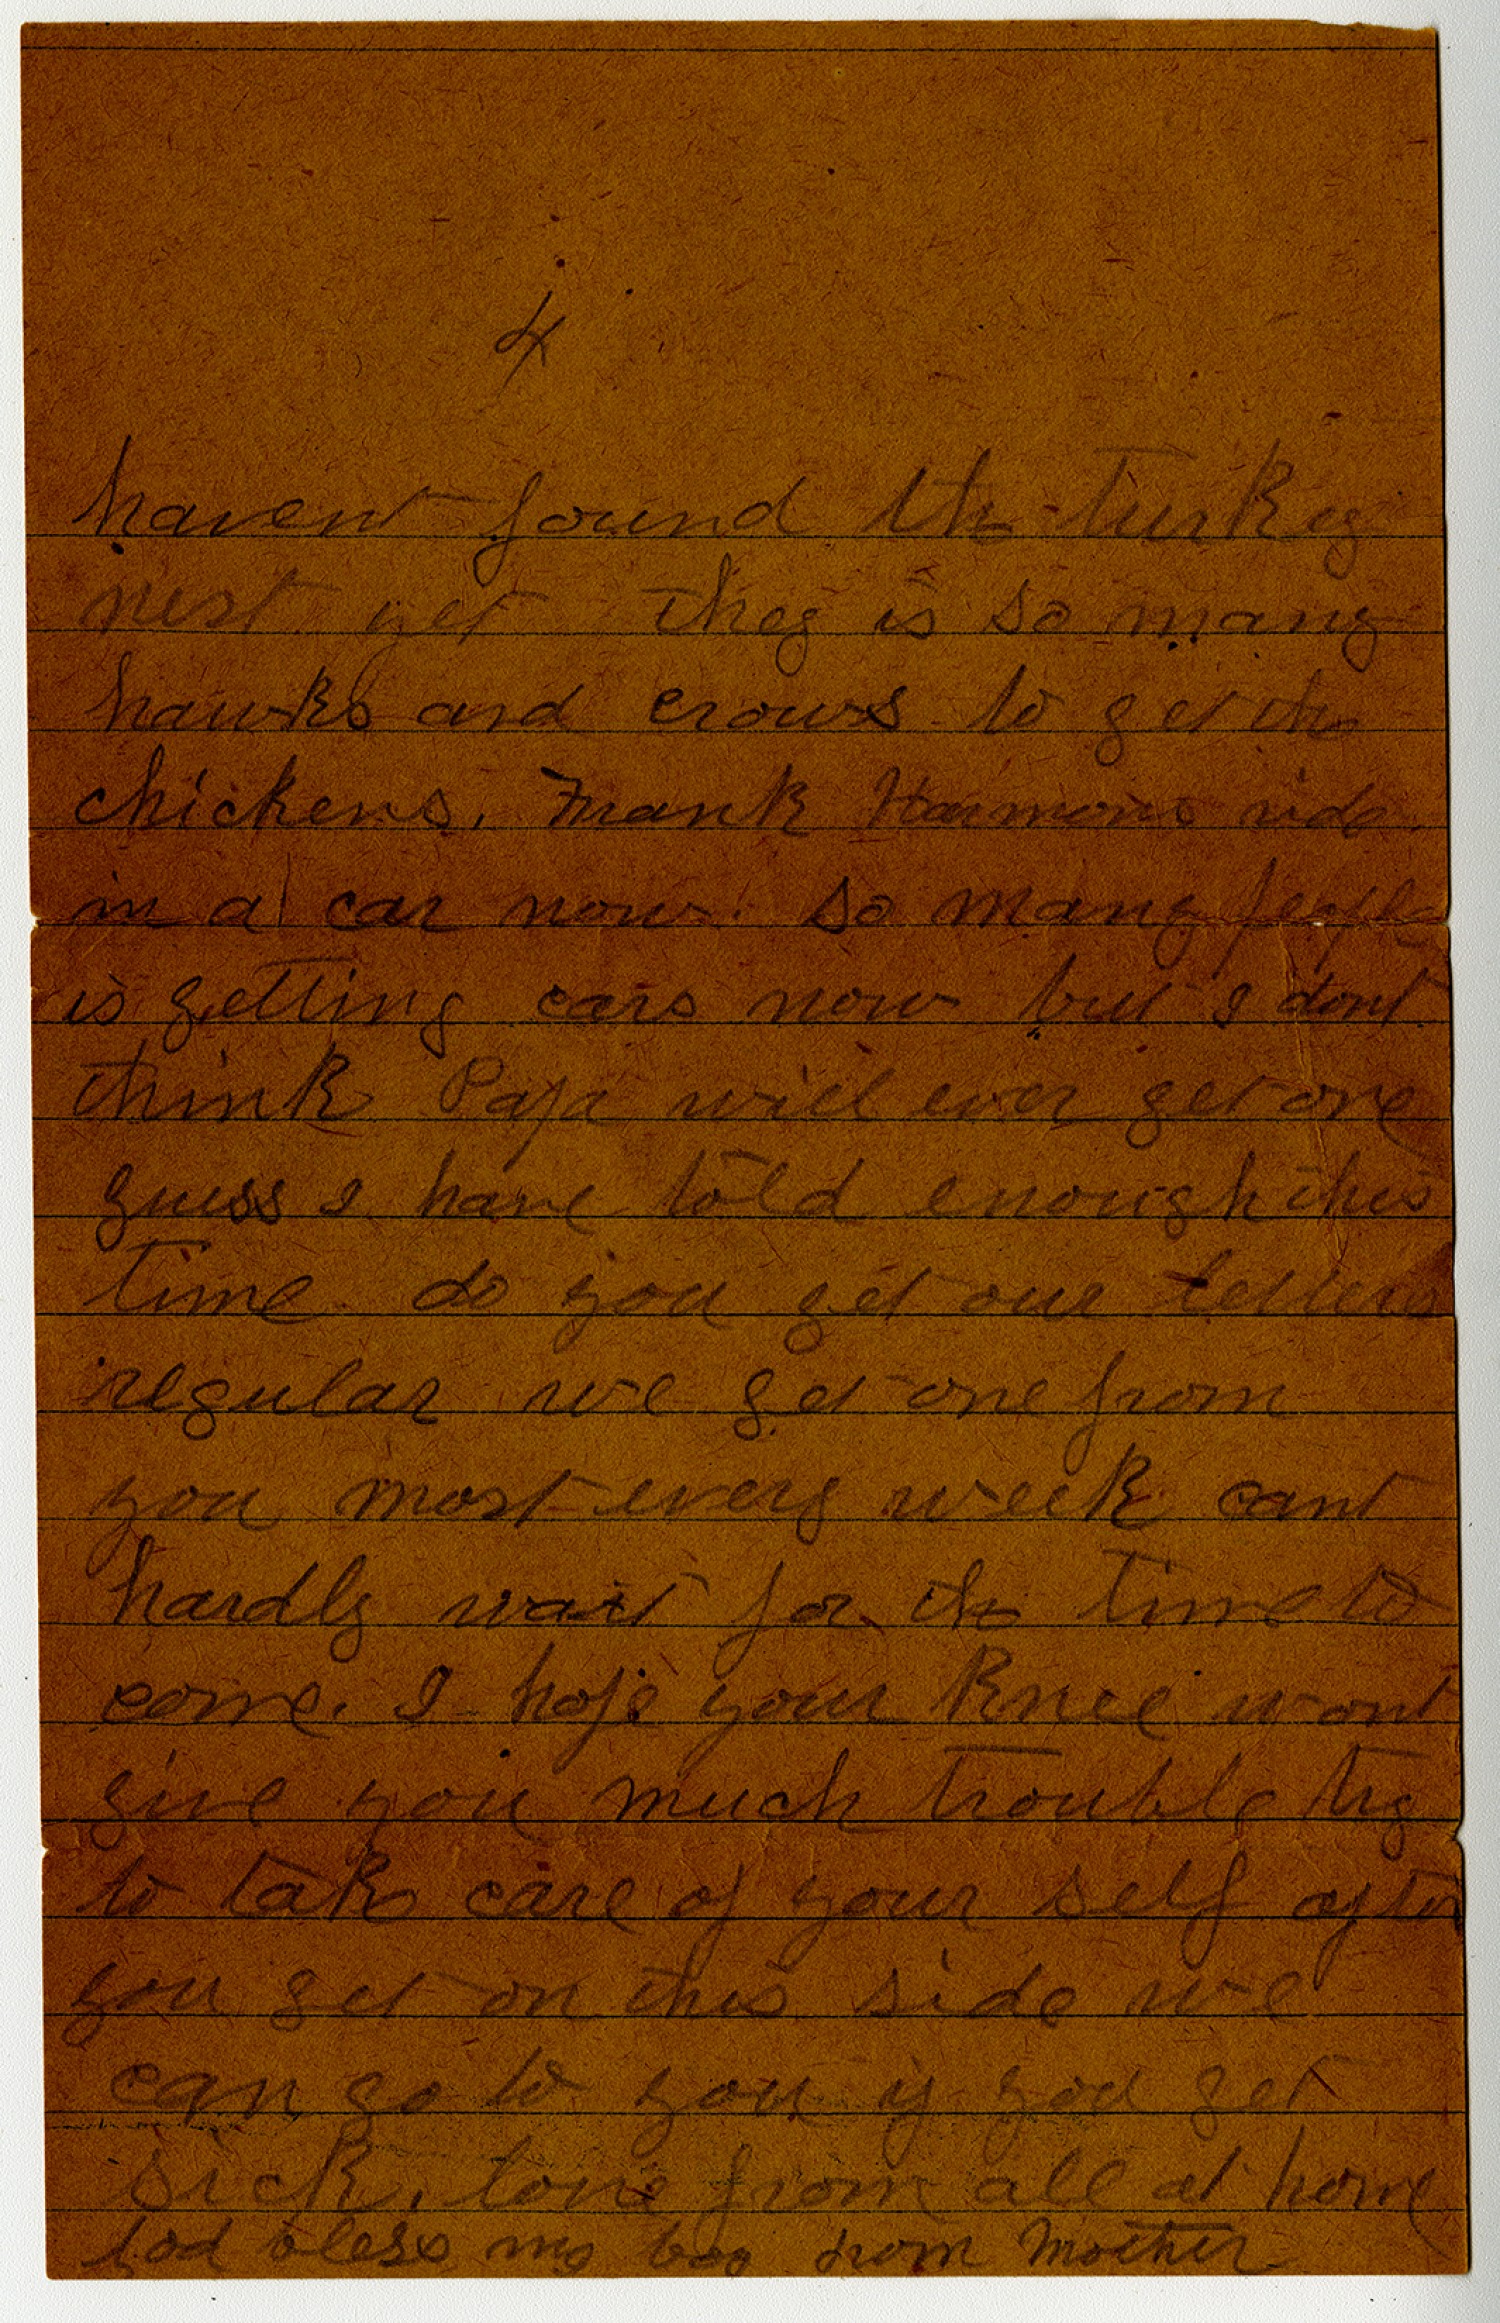 4
havent found the turkey
nest yet they is so many
hawks and crows to get the
chickens. Frank Harmons ride
in a car now. So many people
is getting cars now but I dont
think Papa will ever get one
guess I have told enough this
time do you get our letters
regular we get one from
you most every week cant
hardly wait for the time to
come. I hope your knee wont
give you much trouble try
to take care of your self after
you get on this side we
can go to you if you get
sick. love from all at home
God bless my boy from Mother